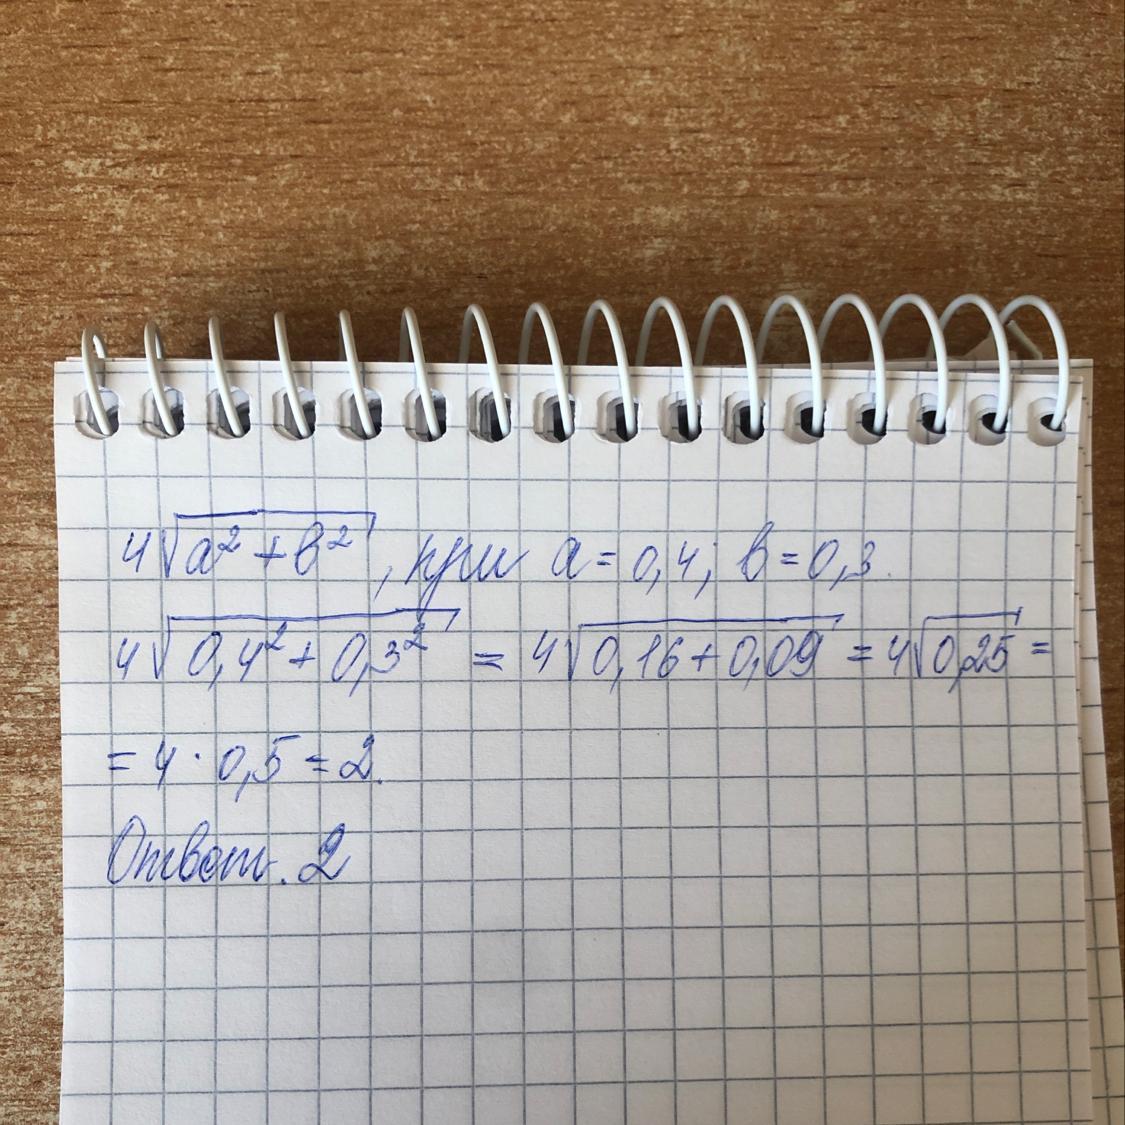 4√(a² + b²), при a = 0,4; b = 0,3.
4√(0,4² + 0,3²) = 4√(0,16 + 0,09) = 4√0,25 =
= 4 · 0,5 = 2.
Ответ. 2